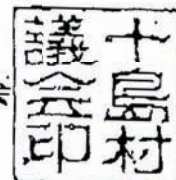 十島村
議会印